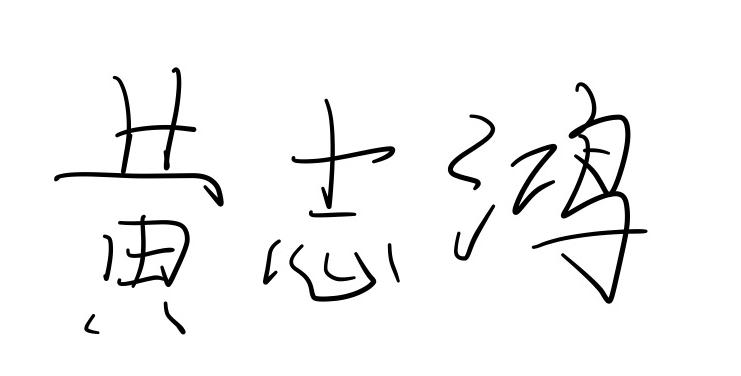 黄志鸿